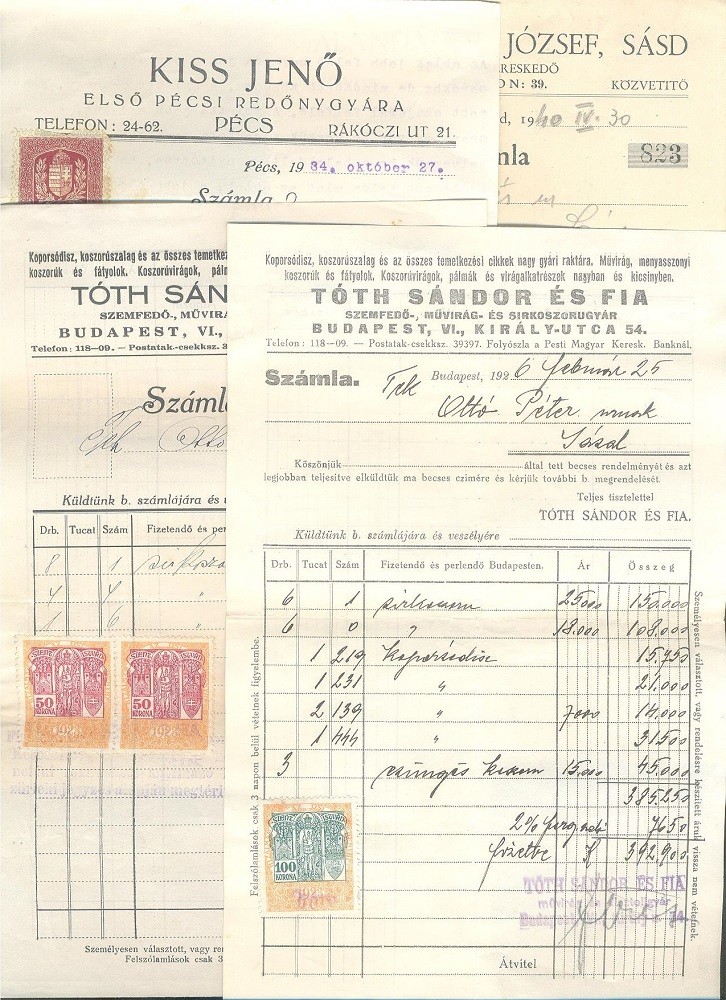 KISS JENŐ
ELSŐ PÉCSI REDŐNYGYÁRA
TELEFON: 24-62. PÉCS RÁKÓCZI UT 21.
Pécs, 1934. október 27.
Számla
JÓZSEF, SÁSD
ERESKEDŐ
ON: 39. KÖZVETITŐ
d, 1940 IV. 30
mla 823
Koporsódisz, koszorúszalag és az összes temetkez
koszorúk és fátyolok. Koszorúvirágok, pálm
TÓTH SÁN
SZEMFEDŐ-, MŰVIRÁ
BUDAPEST, VI.,
Telefon: 118—09. — Postatak.-csekksz. 3
Száml
Otto
Küldtünk b. számlájára és
Drb. Tucat Szám Fizetendő és per
8 1
4 4 "
1 6 "
SZENT ISTVÁN SZENT ISTVÁN
50 KORONA 50 KORONA
Személyesen választott, vagy ren
Felszólamlások csak 3
Koporsódisz, koszorúszalag és az összes temetkezési cikkek nagy gyári raktára. Művirág, menyasszonyi
koszorúk és fátyolok. Koszorúvirágok, pálmák és virágalkatrészek nagyban és kicsinyben.
TÓTH SÁNDOR ÉS FIA
SZEMFEDŐ-, MŰVIRÁG- ÉS SIRKOSZORUGYÁR
BUDAPEST, VI., KIRÁLY-UTCA 54.
Telefon: 118—09. — Postatak-csekksz. 39397. Folyószla a Pesti Magyar Keresk. Banknál.
Számla. Budapest, 1926 február 25
Tek Ottó Péter urnak
Sásd
Köszönjük által tett becses rendelményét és azt
legjobban teljesitve elküldtük ma becses czimére és kérjük további b. megrendelését.
Teljes tisztelettel
TÓTH SÁNDOR ÉS FIA.
Küldtünk b. számlájára és veszélyére
Drb. Tucat Szám Fizetendő és perlendő Budapesten. Ár Összeg
6 1 sirkoszoru 25000 150.000
6 0 " 18.000 108.000
1 219 koporsódisz 15.750
1 231 " 21.000
2 139 " 7000 14.000
1 444 " 31500
3 csüngős koszoru 15.000 45.000
385.250
2% forg. adó 7650
fizetve K 392.900
SZENT ISTVÁN
100 KORONA
TÓTH SÁNDOR ÉS FIA
Átvitel
Felszólamlások csak 3 napon belül vétetnek figyelembe.
Személyesen választott, vagy rendelésre készitett áruk vissza nem vétetnek.